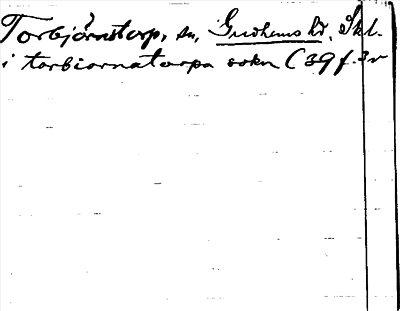 Torbjörnstorp, sn, Gudhems hd, Skl.
i torbiornatorpa sokn C 39 f. 3v